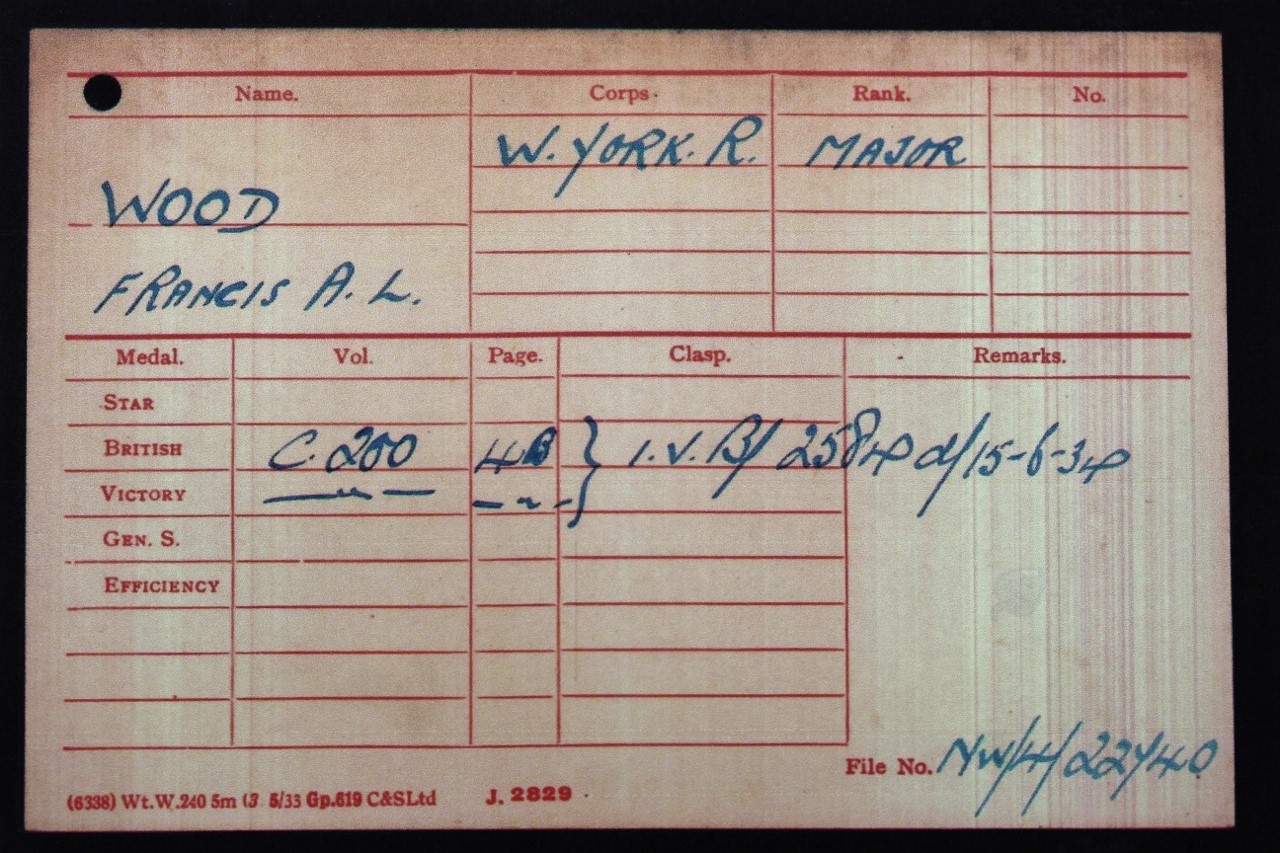 Name. Corps. Rank. No.
W. YORK. R. MAJOR
WOOD
FRANCIS A. L.
Medal. Vol. Page. Clasp. Remarks.
STAR
BRITISH C. 200 4B } I.V. B/ 2584 d/15-6-34
VICTORY — " — — " —
GEN. S.
EFFICIENCY
File No. NW/4/22740
(6338) Wt.W.240 5m (3 5/33 Gp.619 C&SLtd J. 2829